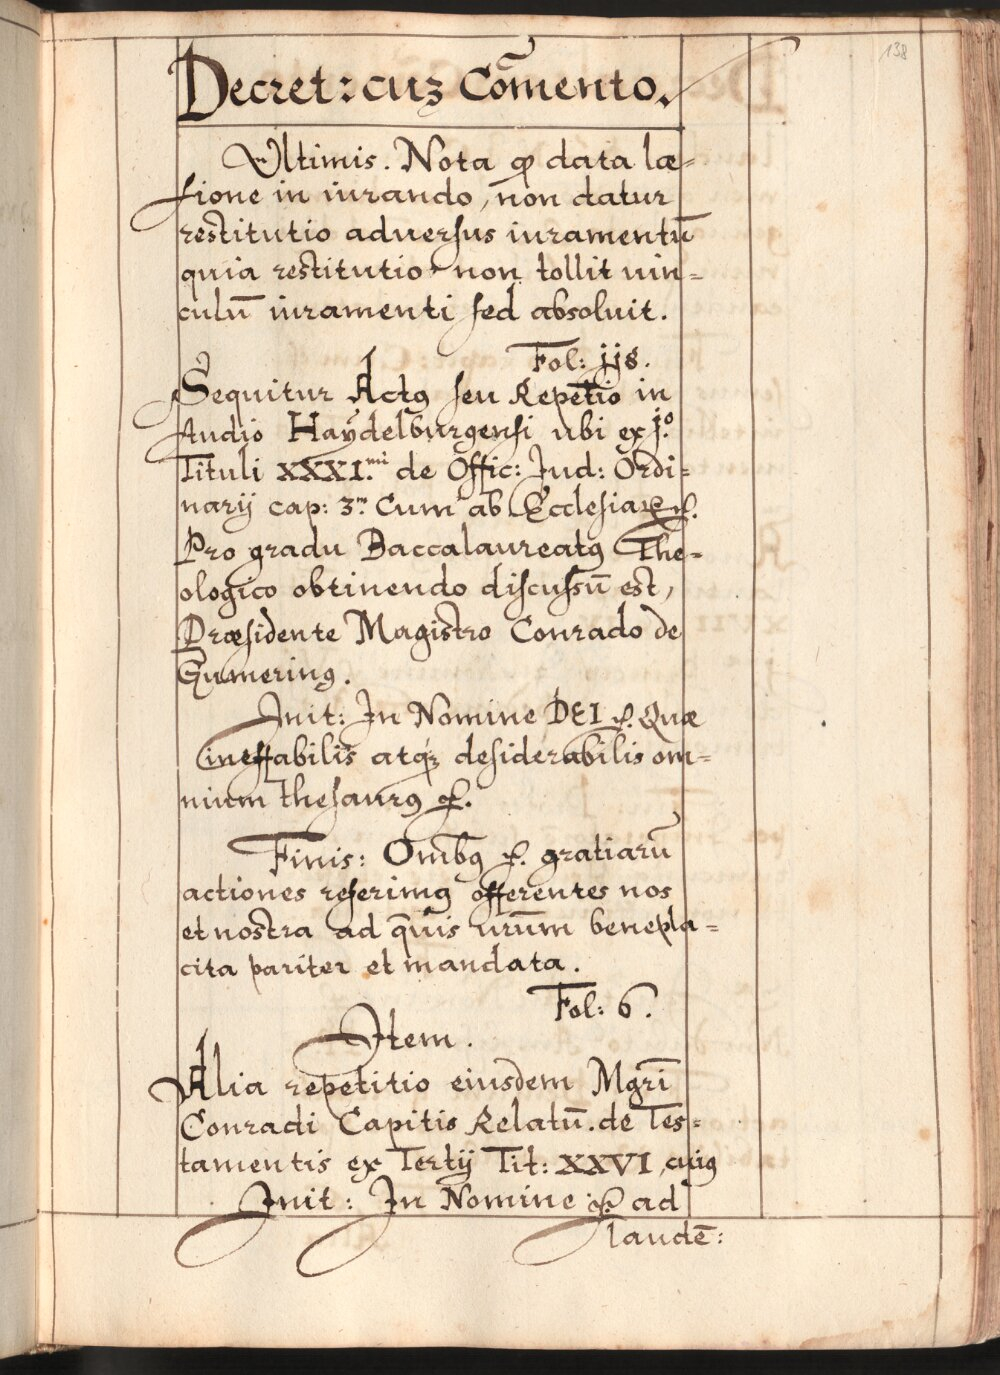 138
Decret: cuꝫ Com̃ento.
Ultimis. Nota ꝙ data læ-
sione in iurando, non datur
restitutio aduersus iuramentū
quia restitutio non tollit uin=
culū iuramenti sed absoluit.
Fol: jj8.
Sequitur Actꝯ seu Repetio in
Studio Haÿdelburgensi ubi ex j.º
Tituli XXXI.mi de Offic: Jud: Ordi=
narij cap: 3.m Cum ab Ecclesiaꝝ ꝛc.
Pro gradu Baccalaureatꝯ The=
ologico obtinendo discussū est,
Præsidente Magistro Conrado de
Init: In Nomine DEI ꝛc. Quæ
ineffabilis atqꝫ desiderabilis om=
nium thesaurꝯ ꝛc.
Finis: Om̄bꝯ ꝛc. gratiarū
actiones referimꝯ offerentes nos
et nostra ad q̄uis ur̄um benepla=
cita pariter et mandata.
Fol: 6.
Item.
Alia repetitio eiusdem Mgr̄i
Conradi Capitis Relatū. de Tes=
tamentis ex Tertij Tit: XXVI, cuiꝯ
Init: In Nomine ꝛc. ad
laudē: